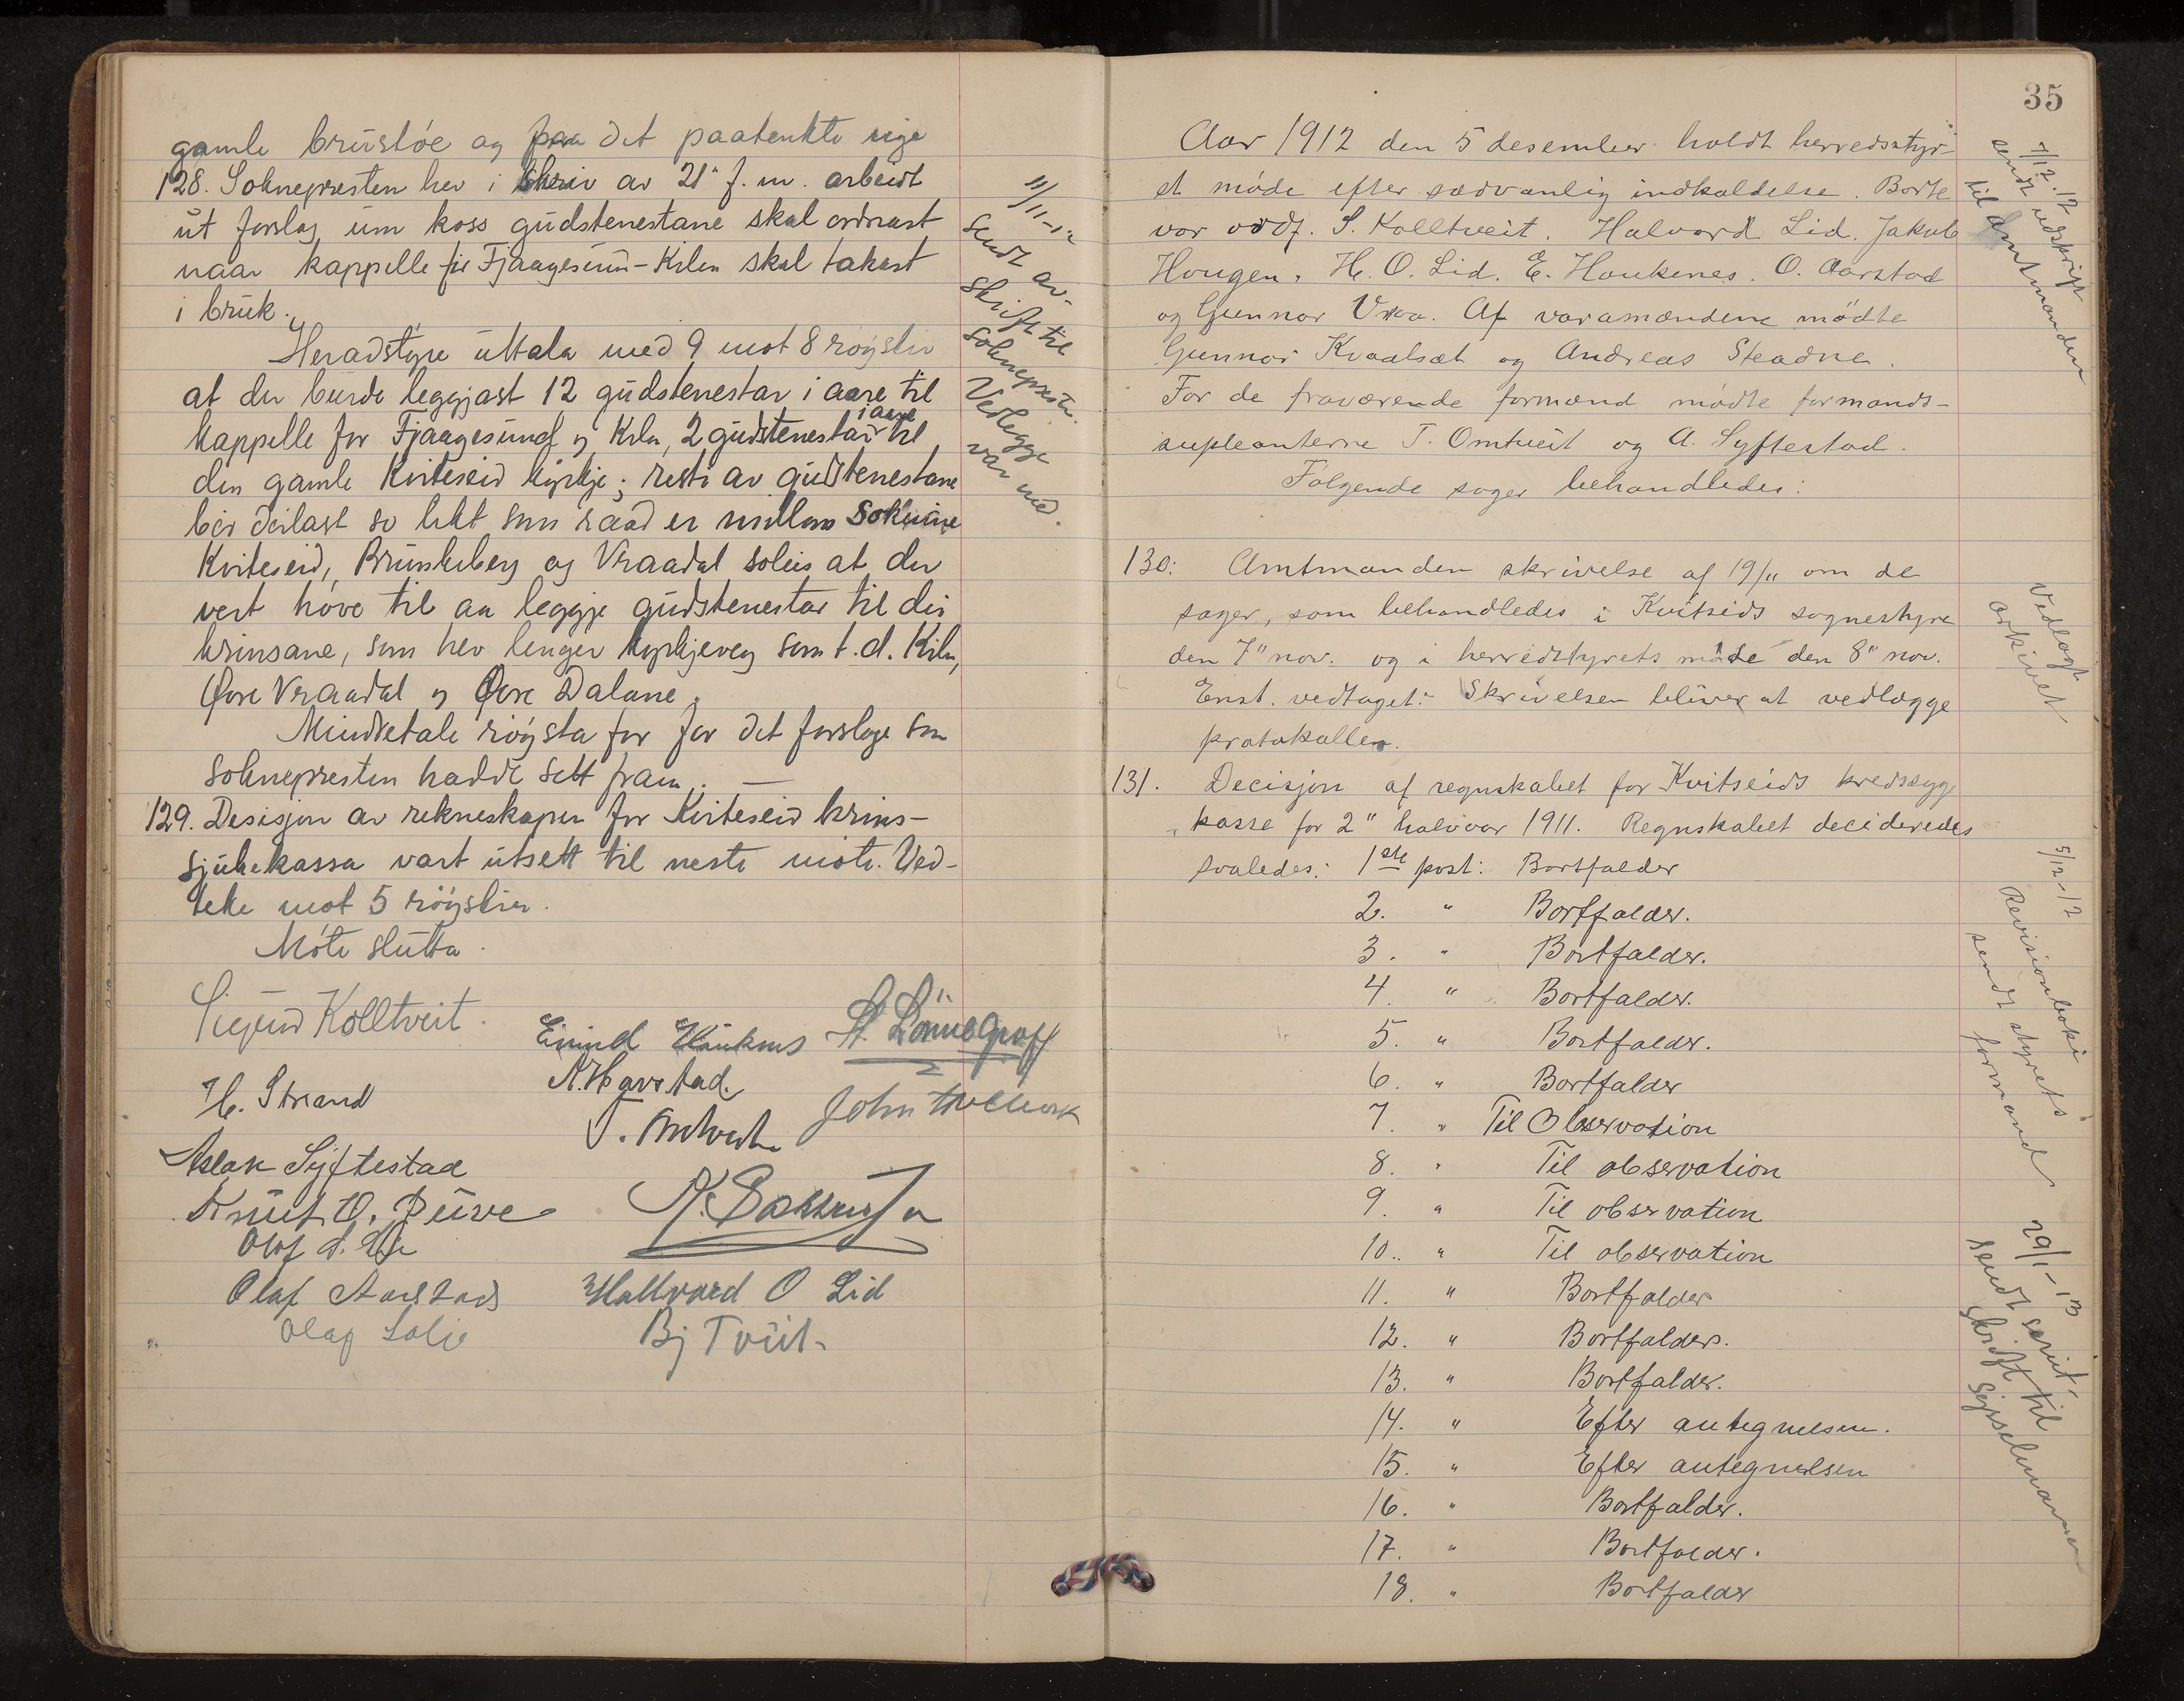 gamle brustøe og paa det paatenkte nye
128. Soknepresten hev i skriv av 21" f. m. arbeidt
ut forslag um koss gudstenestane skal ordnast
naar kappelle fir Fjaagesund-Kilen skal takast
i bruk.
Heradstyre uttala med 9 mot 8 røyster
at der burde leggjast 12 gudstenestar i aare til
kappelle for Fjaagesund og Kilen, 2 gudstenestar i aare til
den gamle Kviteseid kyrkje; resten av gudstenestane
bør deilast so likt som raad er millom soknine
Kviteseid, Brunkeberg og Vraadal soleis at der
vert høve til aa leggje gudstenestar til dei
krinsane, som hev lenger kyrkjeveg som t. d. Kilen,
Øvre Vraadal og Øvre Dalane.
Mindretale røysta for for det forslage som
soknepresten hadde sett fram. —
129. Desisjon av rekneskapen for Kviteseid krins-
sjukekassa vart utsett til neste møte. Ved-
teke mot 5 røyster.
Møte slutta.
Sigurd Kolltveit.
Eivind Haukenes
H. Strand
N. Havrstad
John
Aslak Syftestad
Knut O.
Olaf Aarstad
Hallvard O Lid
Olaf Lolie
Bj Tveit.
11/11-12
Sendt av-
skrift til
soknepresten.
Vedlegge
var med.
35
Aar 1912 den 5 desember holdt herredsstyr-
et møde efter sædvanlig indkaldelse. Borte
var ordf. S. Kolltveit. Halvord Lid. Jakob
Hougen. H. O. Lid. E. Haukenes. O. Aarstad
og Gunnar Vraa. Af varamændene mødte
Gunnar Kvaalsæt og Andreas Steadne.
For de fraværende formænd mødte formands-
supleanterne T. Omtveit og A. Syftestad.
Følgende sager behandledes:
130: Amtmanden skrivelse af 19/11 om de
sager, som behandledes i Kvitseids sognestyre
den 7" nov. og i herredstyrets møde den 8" nov.
Enst. vedtaget: Skrivelsen bliver at vedlægge
protokollen.
131. Decisjon af regnskabet for Kvitseids kredssyge
kasse for 2" halvaar 1911. Regnskabet decideredes
saaledes: 1ste post: Bortfalder
2. " Bortfalder.
3. " Bortfalder.
4. " Bortfalder.
5. " Bortfalder.
6. " Bortfalder
7. " Til Observation
8. " Til observation
9. " Til observation
10. " Til observation
11. " Bortfalder
12. " Bortfalder.
13. " Bortfalder.
14. " Efter antegnelsen.
15. " Efter antegnelsen
16. " Bortfalder.
17. " Bortfalder.
18. " Bortfalder
7/12.12
sendt udskrift
til Amtmanden
Vedlagt
arkivet
5/12-12
Revisionboki
sendt styrets
formand
29/1-13
sendt
skrift til